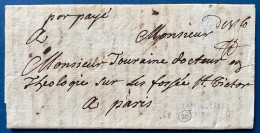 port payé
A Monsieur
Monsieur Touraine docteur en
Theologie sur les fossés St. Victor
A paris